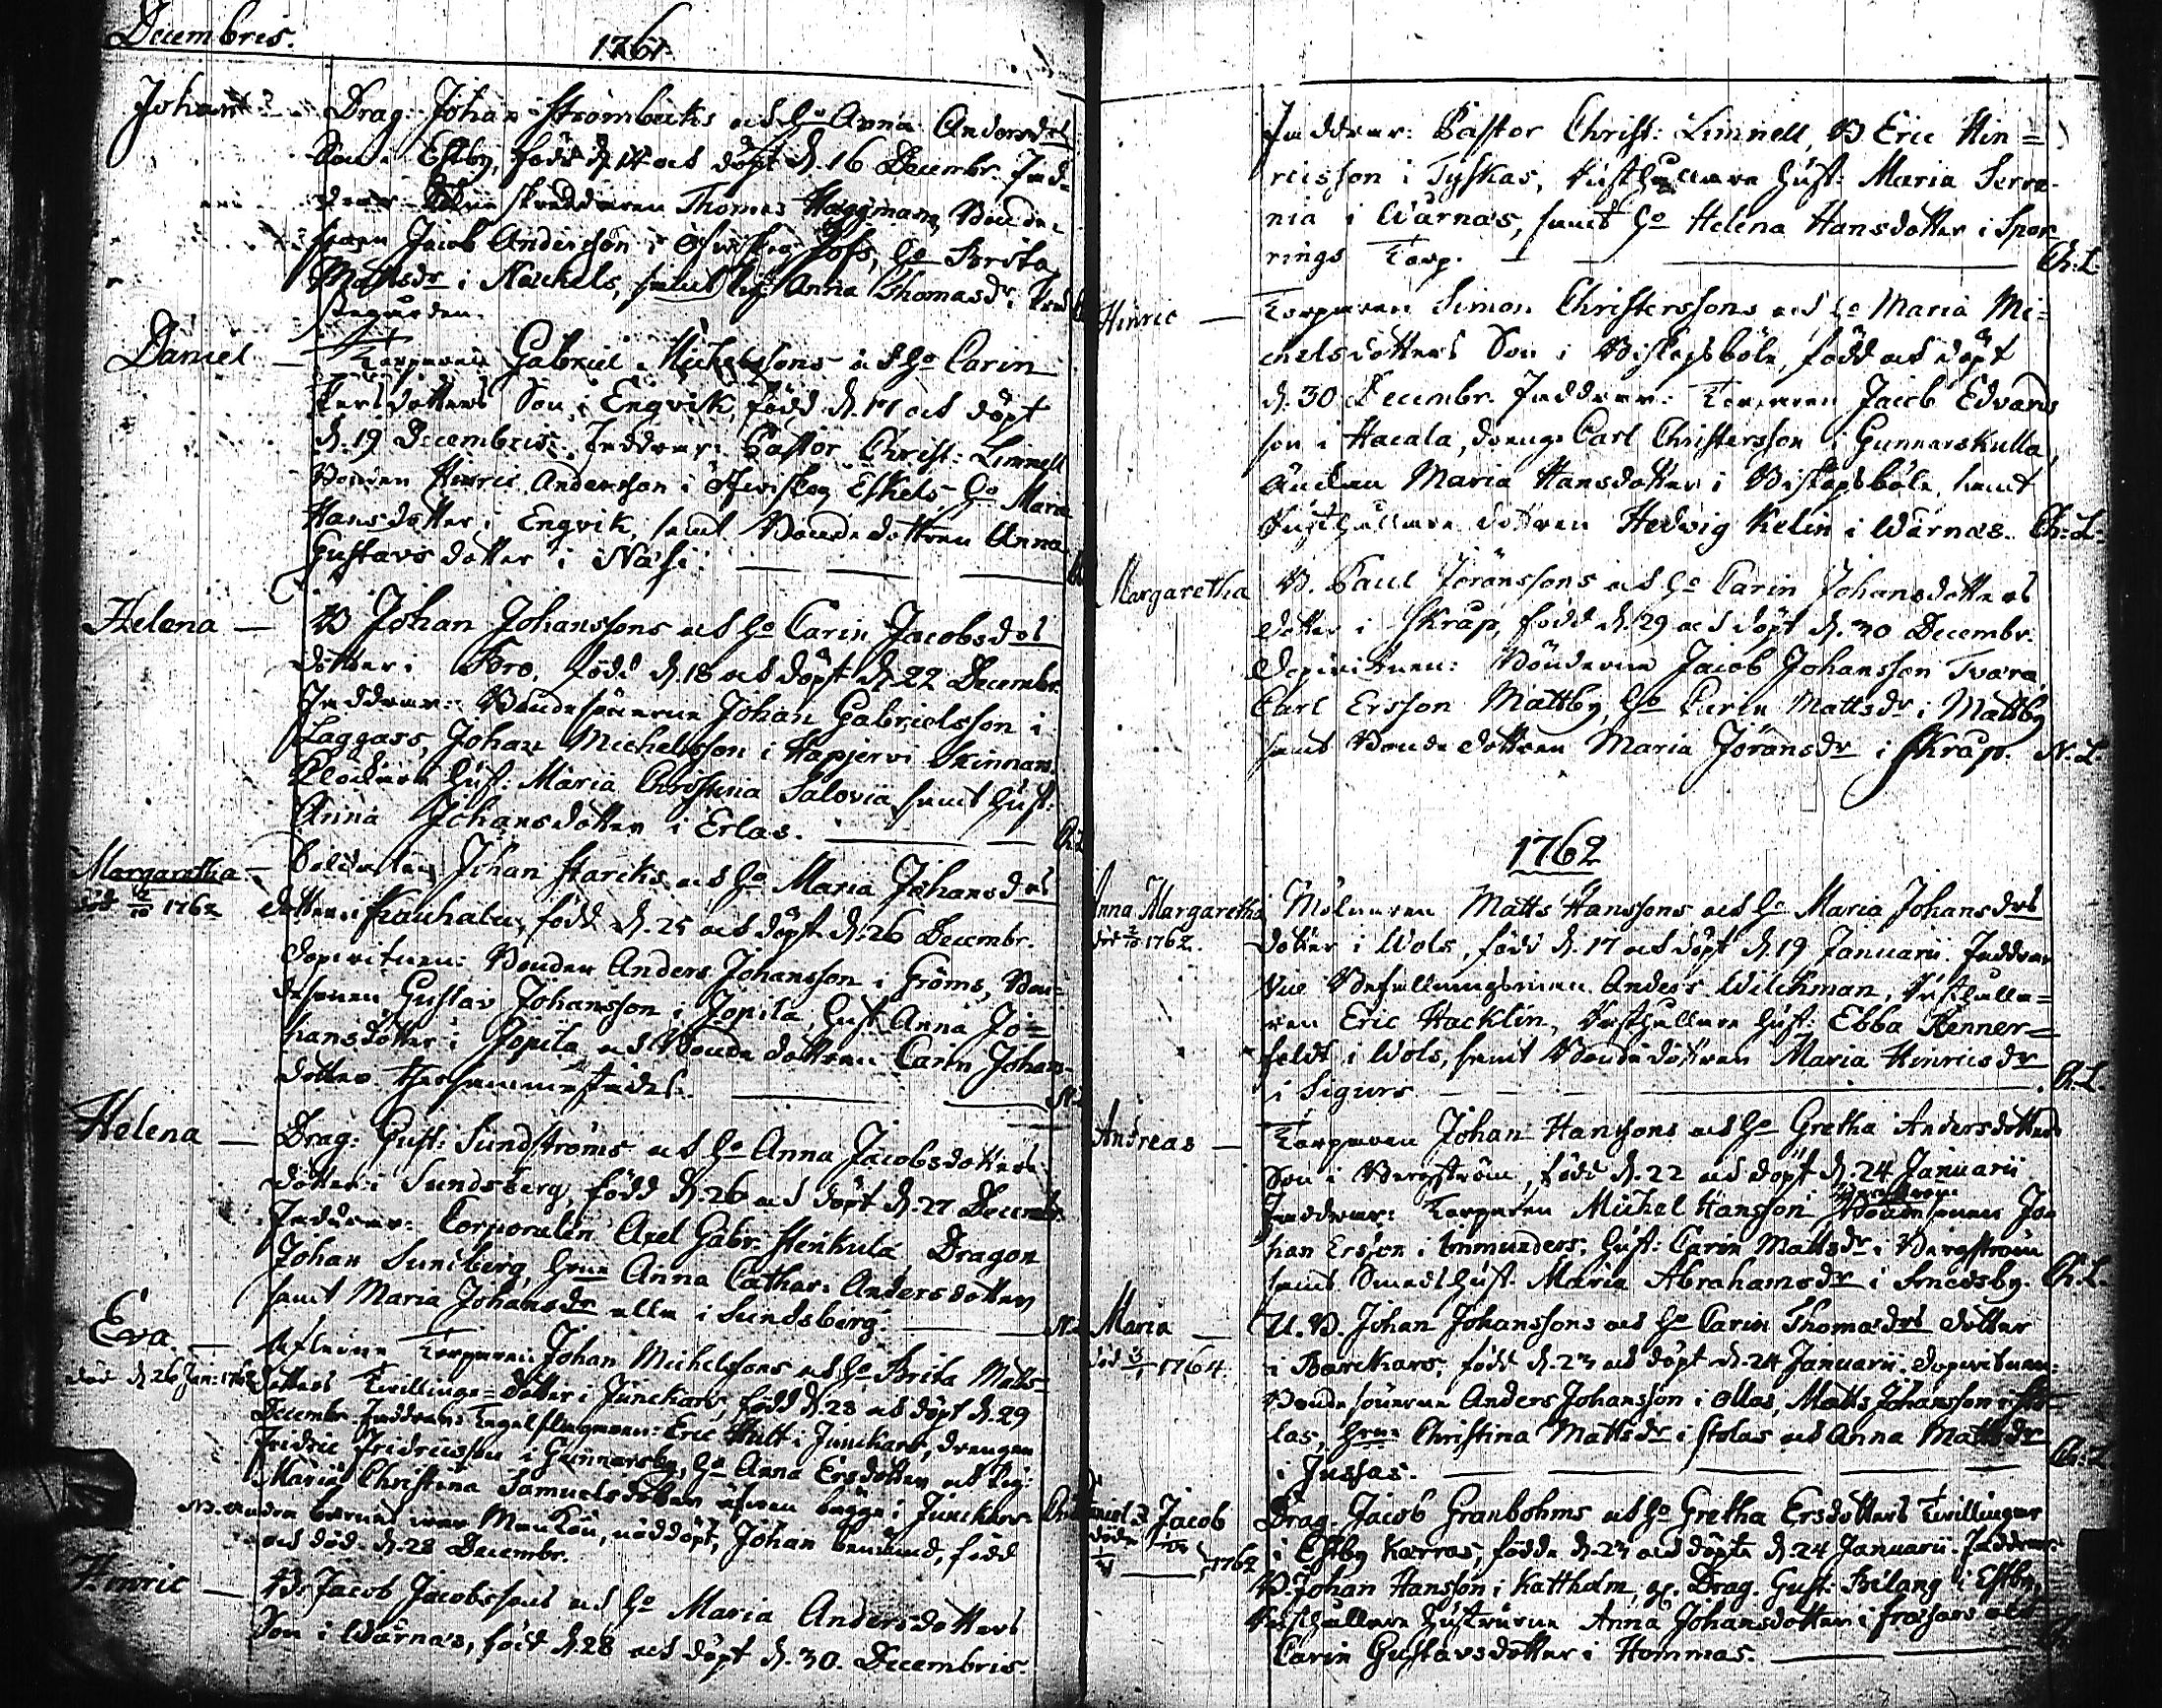 Decembris.
1761.
Johan
Drag: Johan Strömbäcks och H:o Anna Andersdrs
Son i Estby, född d. 14 och döpt d. 16 Decembr. Fad-
drar skräddaren Thomas Häggman, Bonde-
sonen Jacob Andersson i Hofs, H:o Brita
Mattsdr i Nackels, samt Pig: Anna Thomasdr i
stegården.
Daniel —
Torparen Gabriel Michelssons och H:o Carin
dotters Son i Engvik, född d. 17 och döpt
d. 19 Decembris. Faddrar: Pastor Christ: Limnell
Bonden Hinric Andersson i Öfverskog Eskels H:o Maria
Hansdotter i Engvik, samt Bondedottren Anna
Gustavsdotter i Näse.
Helena —
B Johan Johanssons och H:o Carin Jacobsdrs
dotter i Bro, född d. 18 och döpt d. 22 Decembr.
Faddrar: Bondesönerne Johan Gabrielsson i
Laggars, Johan Michelsson i Hapjervi Skinnars
Klockare Hust: Maria Christina Salovia samt Hust:
Anna Johansdotter i Erlas.
Margaretha —
död 2/10 1762
Soldaten Johan Starcks och H:o Maria Johansdrs
dotter i Kauhala, född d. 25 och döpt d. 26 Decembr.
Dopvitnen: Bonden Anders Johansson i Gröms, Bon-
desonen Gustav Johansson i Jopila, Hust: Anna Jo=
hansdotter i Jopila och Bondedottren Carin Johans-
dotter thersammastädes.
Helena —
Drag: Gust: Sundströms och H:o Anna Jacobsdotters
dotter i Sundsberg, född d. 26 och döpt d. 27 Decembr.
Faddrar: Corporalen Axel Gabr. Stenkula, Dragon
Johan Sundberg, H:rne Anna Cathar: Andersdotter
samt Maria Johansdr alla i Sundsberg.
Eva. —
död d. 26 Jan: 1762
Afledne Torparen Johan Michelssons och H:o Brita Matts-
dotters Tvillinge=dotter i Junckars, född d. 28 och döpt d. 29
Decembr. Faddrar: Tegelslagaren Eric Hult i Junckars, drengen
Fridric Fridricsson i Gunnarsby, H:o Anna Ersdotter och Pig:
Maria Christina Samuelsdotter äfven begge i Junckars.
NB. Andra barnet var Mankön, nöddöpt, Johan benämnd, född
och död d. 28 Decembr.
Hinric —
B. Jacob Jacobssons och H:o Maria Andersdotters
Son i Wärnäs, född d. 28 och döpt d. 30. Decembris.
Faddrar: Pastor Christ: Limnell, B Eric Hin=
ricsson i Tyskas, Rusthållare Hust: Maria Serre-
nia i Wärnäs, samt H:o Helena Hansdotter i Spor-
rings Torp. Ch: L.
Hinric —
Torparen Simon Christerssons och H:o Maria Mi=
chelsdotters Son i Biskopsböle, född och döpt
d. 30 Decembr. Faddrar: Torparen Jacob Edvards
son i Hacala, dreng: Carl Christersson i Gunnarskulla,
Änckan Maria Hansdotter i Biskopsböle, samt
Rusthållare dottren Hedvig Kelin i Wärnäs. Ch: L.
Margaretha
B. Paul Jöranssons och H:o Carin Johansdotters
dotter i Skrap, född d. 29 och döpt d. 30 Decembr.
Dopvitnen: Bönderne Jacob Johansson Tvara,
Carl Ersson Mattby, H:o Carin Mattsdr i Mattby
samt Bonde dottren Maria Jöransdr i Skrap. N. L.
1762
Anna Margaretha
död 3/10 1762.
Mölnaren Matts Hanssons och H:o Maria Johansdrs
dotter i Wols, född d. 17 och döpt d. 19 Januarii. Faddrar
Befallningsman Anders Wilckman, Rusthålla=
ren Eric Hacklin, Rusthållare Hust: Ebba Renner=
feldt i Wols, samt Bondedottren Maria Hinricsdr
i Sigurs Ch. L.
Andreas —
Torparen Johan Hanssons och H:o Gretha Andersdotters
Son i Bergström, född d. 22 och döpt d. 24 Januarii
Faddrar: Torparen Michel Hansson i Bergström Bondesonen Jo-
han Ersson i Ingmunders, Hust: Carin Mattsdr i Bergström
samt Smeds Hust: Maria Abrahamsdr i Smedsby. Ch. L.
Maria —
död 3/1 1764.
U. B. Johan Johanssons och H:o Carin Thomasdrs dotter
i Barckars, född d. 23 och döpt d. 24 Januarii. Dopvitnen:
Bondesönerne Anders Johansson i Ollas, Matts Johansson i Sto-
las, H:rne Christina Mattsdr i Stolas och Anna Mattsdr
i Jussas. Ch: L
Daniel & Jacob
döde 1762
Drag. Jacob Granbohms och H:o Gretha Ersdotters Tvillingar
i Estby Karras, födde d. 23 och döpte d. 24 Januarii. Faddrar:
B. Johan Hansson i Kattholm, Drag. Gust: Bilang i Estby,
Rusthållare Hustrurne Anna Johansdotter i Frössars och
Carin Gustavsdotter i Hommas.